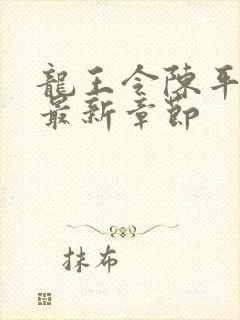 龍王令陳平
最新章節
抹布